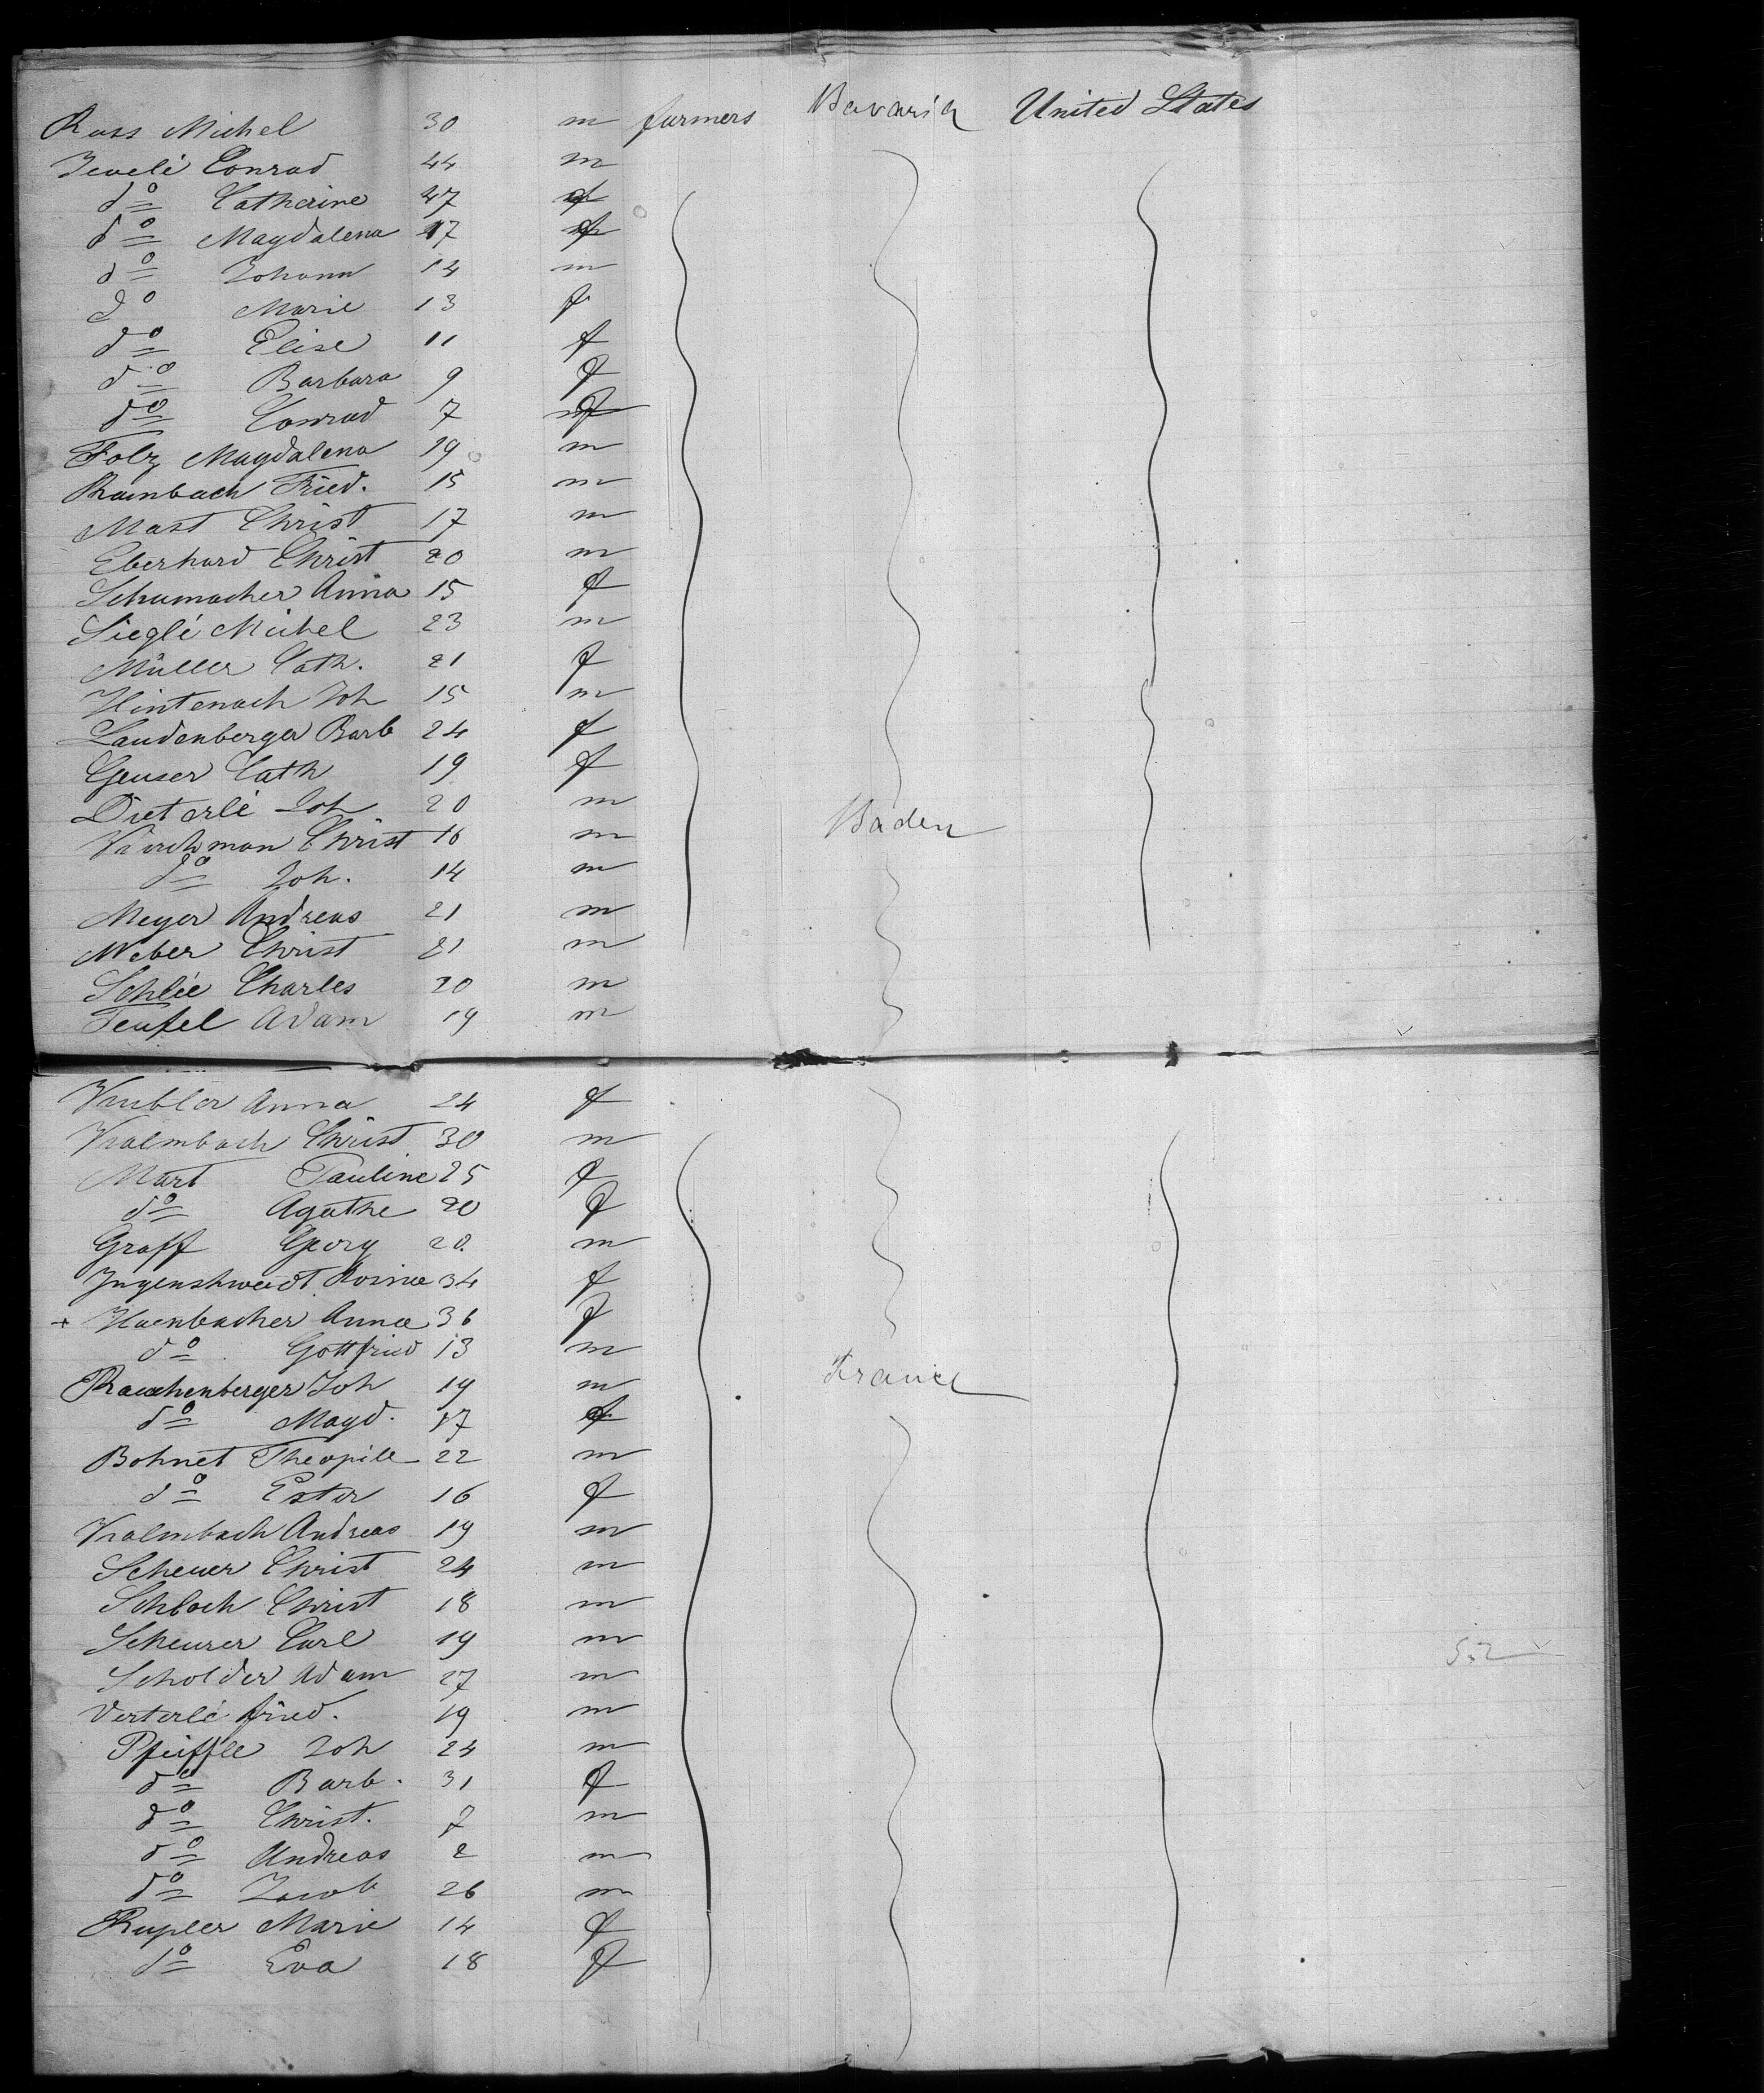 Russ Michel 30 m farmers Bavaria United States
Jevelé Conrad 44 m
do Catherine 47 f
do Magdalena 17 f
do Johann 14 m
do Marie 13 f
do Elise 11 f
do Barbara 9 f
do Conrad 7
Folz Magdalena 19 m
Rambach Fried. 15 m
Mast Christ 17 m
Eberhard Christ 20 m
Schumacher Anna 15 f
Sieglé Michel 23 m
Müller Cath. 21 f
Hintenach Joh 15 m
Laudenberger Barb 24 f
Geuser Cath 19 f
Dieterlé Joh 20 m
Christ 16 m Baden
do Joh. 14 m
Meyer Andreas 21 m
Weber Christ 21 m
Schlée Charles 20 m
Teufel Adam 19 m
Anna 24 f
Kalmbach Christ 30 m
Mart Pauline 25 f
do Agathe 20 f
Graff Georg 20. m
Rosine 34 f
+ Haenbacher Anna 36 f
do Gottfried 13 m
Rauchenberger Joh 19 m France
do Magd. 17 f
Bohnet Theopile 22 m
do Ester 16 f
Kalmbach Andreas 19 m
Scheuer Christ 24 m
Schloch Christ 18 m
Scheurer Carl 19 m
Scholder Adam 27 m
fried. 19 m
Pfeiffle Joh 24 m
do Barb. 31 f
do Christ. 7 m
do Andreas 2 m
do Jacob 26 m
Rupler Marie 14 f
do Eva 18 f